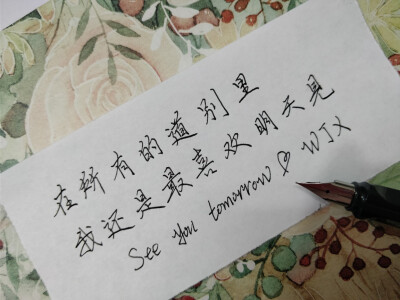 在所有的道别里
我还是最喜欢明天见
See you tomorrow ♡ WJX